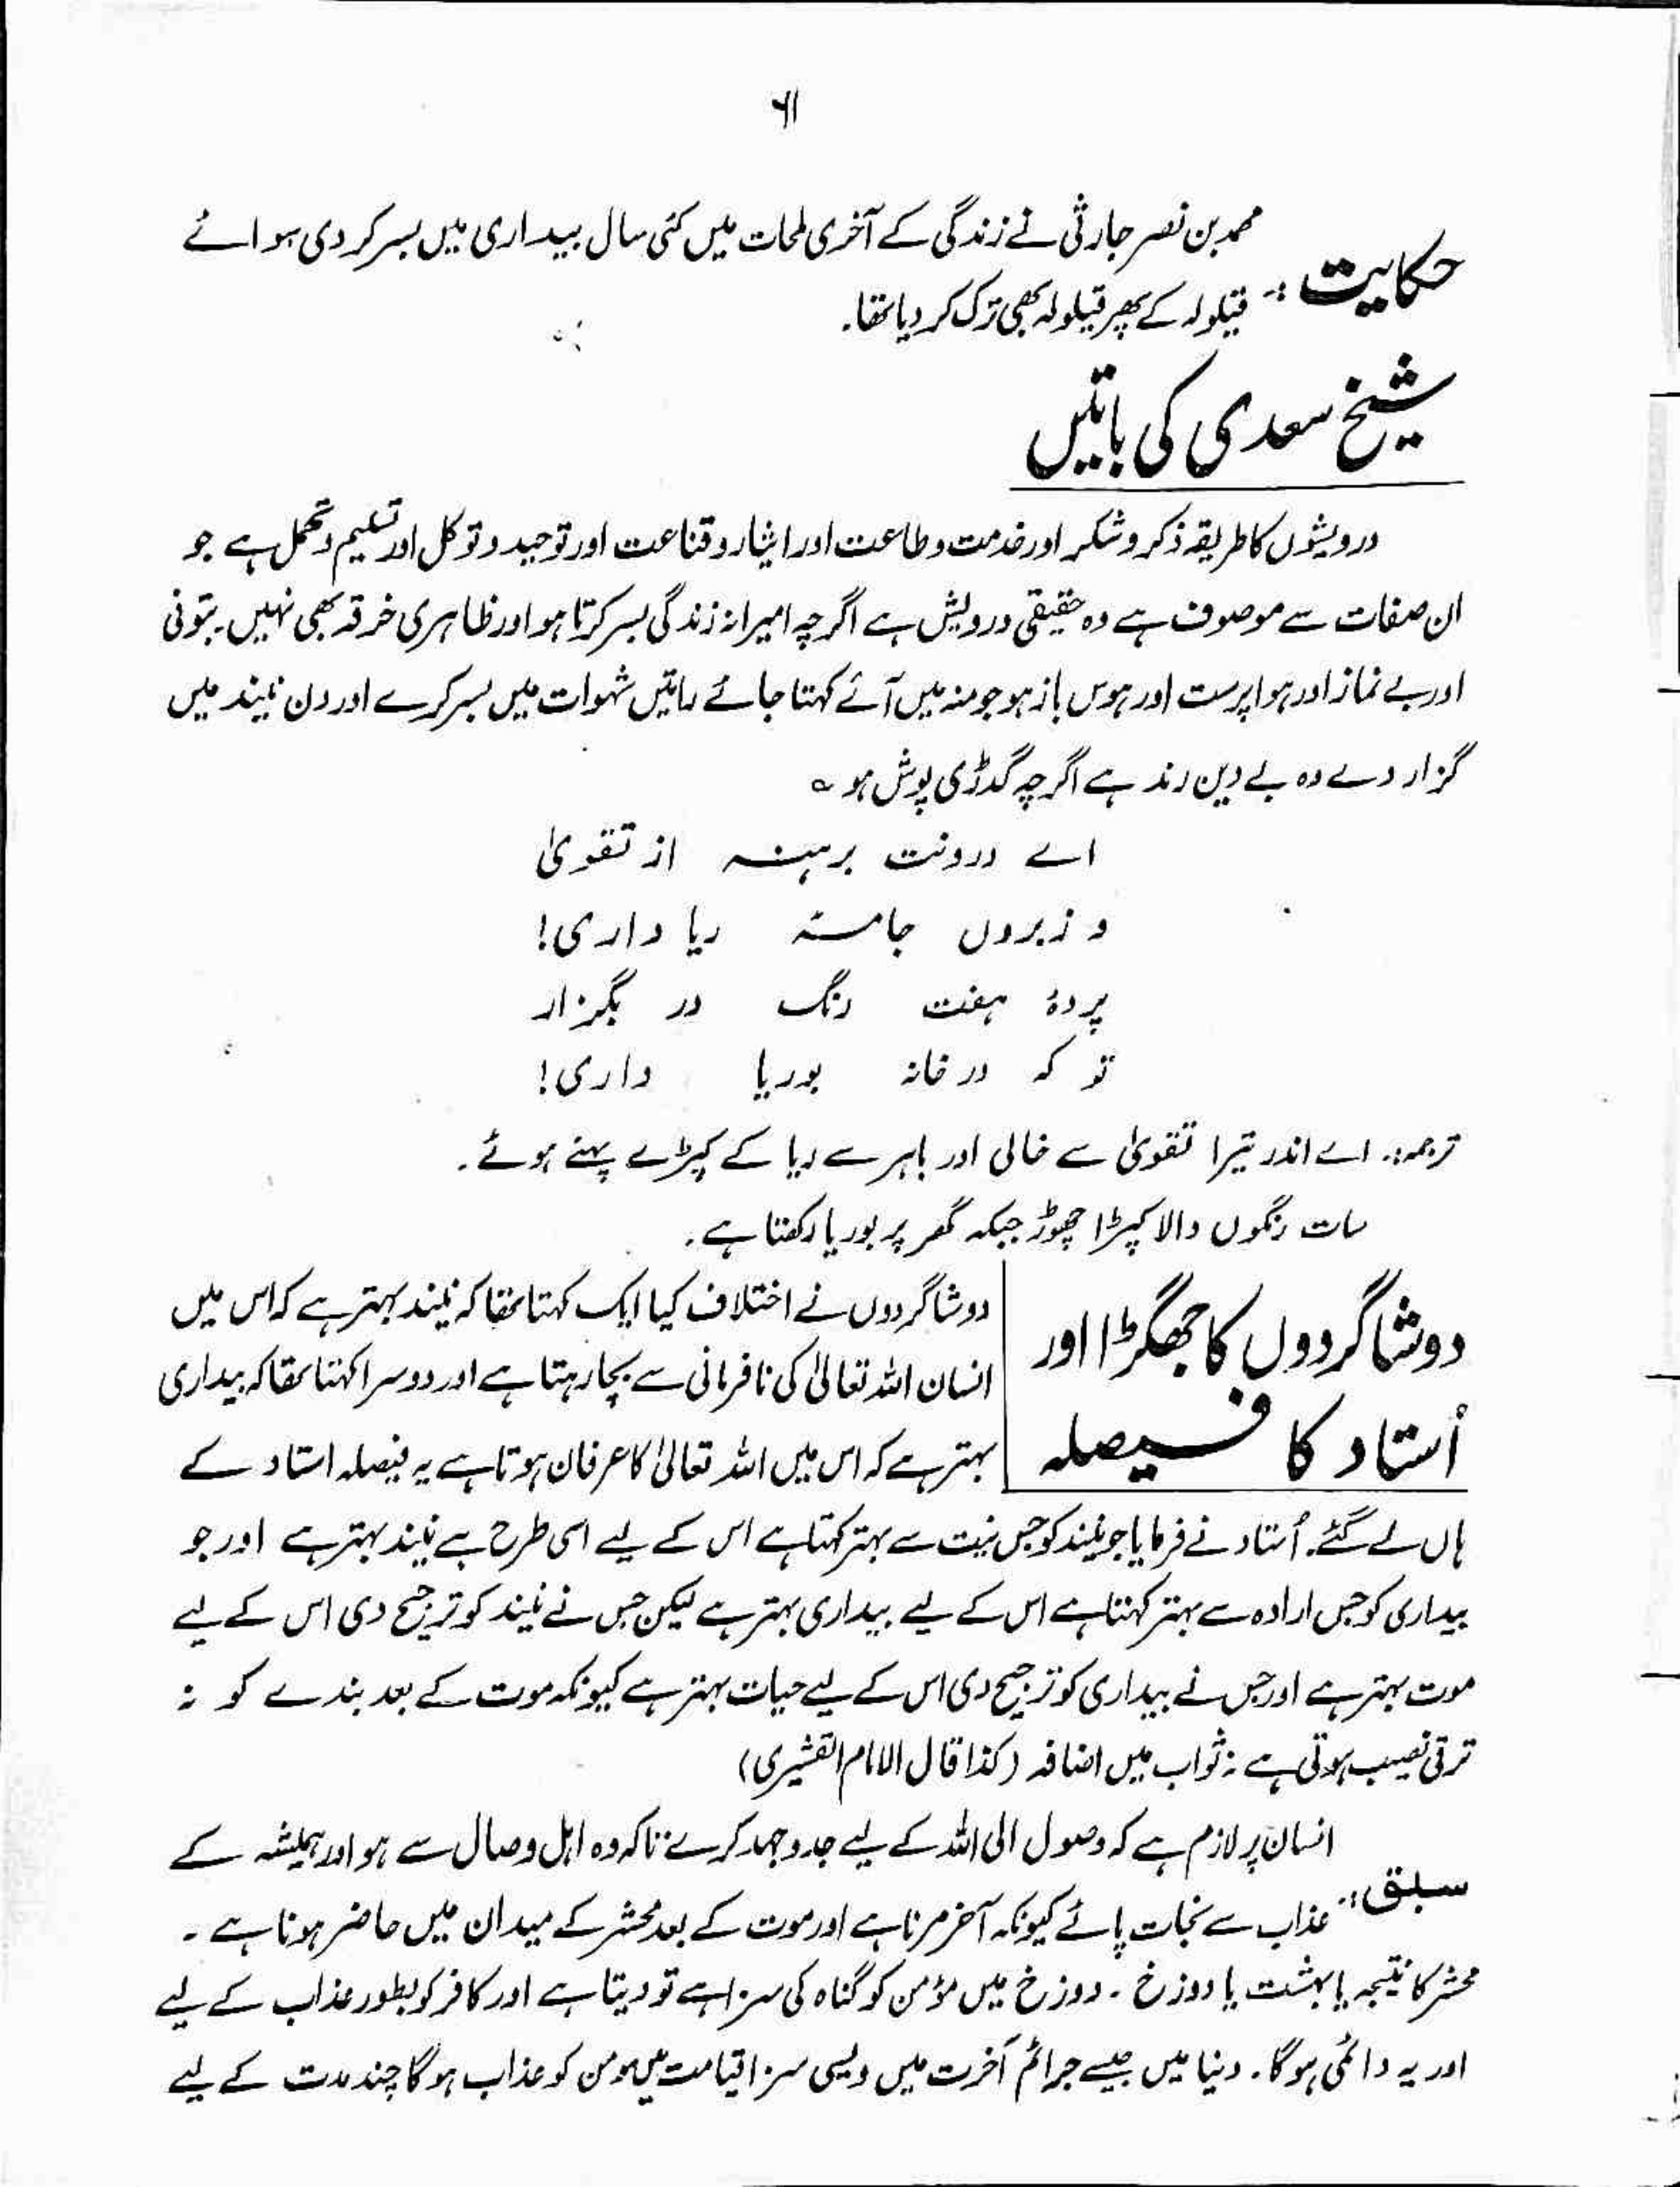 ۶۱
حکایت :- محمد بن نصر حارثی نے زندگی کے آخری لمحات میں کئی سال بیداری میں بسر کر دی سوائے
قیلولہ کے پھر قیلولہ بھی ترک کر دیا تھا۔
شیخ سعدی کی باتیں
درویشوں کا طریقہ ذکر و شکر اور خدمت و طاعت اور ایثار و قناعت اور توحید و توکل اور تسلیم و تحمل ہے جو
ان صفات سے موصوف ہے وہ حقیقی درویش ہے اگرچہ امیرانہ زندگی بسر کرتا ہو اور ظاہری خرقہ بھی نہیں۔ بتونی
اور بے نماز اور ہوا پرست اور ہوس باز ہو جو منہ میں آئے کہتا جائے راتیں شہوات میں بسر کرے اور دن نیند میں
گزار دے وہ بے دین رند ہے اگرچہ گدڑی پوش ہو ؎
اے درونت برہنہ از تقویٰ
و ز بروں جامۂ ریا داری!
پردۂ ہفت رنگ در بگزار
تو کہ در خانہ بوریا داری!
ترجمہ:۔ اے اندر تیرا تقویٰ سے خالی اور باہر سے ریا کے کپڑے پہنے ہوئے۔
سات رنگوں والا کپڑا چھوڑ جبکہ گھر پر بوریا رکھتا ہے۔
دو شاگردوں کا جھگڑا اور
اُستاد کا فیصلہ
دو شاگردوں نے اختلاف کیا ایک کہتا تھا کہ نیند بہتر ہے کہ اس میں
انسان اللہ تعالیٰ کی نافرمانی سے بچا رہتا ہے اور دوسرا کہتا تھا کہ بیداری
بہتر ہے کہ اس میں اللہ تعالیٰ کا عرفان ہوتا ہے یہ فیصلہ استاد کے
ہاں لے گئے۔ اُستاد نے فرمایا جو نیند کو جس نیت سے بہتر کہتا ہے اس کے لیے اسی طرح ہے نیند بہتر ہے اور جو
بیداری کو جس ارادہ سے بہتر کہتا ہے اس کے لیے بیداری بہتر ہے لیکن جس نے نیند کو ترجیح دی اس کے لیے
موت بہتر ہے اور جس نے بیداری کو ترجیح دی اس کے لیے حیات بہتر ہے کیونکہ موت کے بعد بندے کو نہ
ترقی نصیب ہوتی ہے نہ ثواب میں اضافہ (کذا قال الامام القشیری)
سبق :- انسان پر لازم ہے کہ وصول الی اللہ کے لیے جدوجہد کرے تاکہ وہ اہل وصال سے ہو اور ہمیشہ کے
عذاب سے نجات پائے کیونکہ آخر مرنا ہے اور موت کے بعد محشر کے میدان میں حاضر ہونا ہے ۔
محشر کا نتیجہ یا بہشت یا دوزخ ۔ دوزخ میں مؤمن کو گناہ کی سزا ہے تو دیتا ہے اور کافر کو بطور عذاب کے لیے
اور یہ دائمی ہوگا۔ دنیا میں جیسے جرائم آخرت میں ویسی سزا قیامت میں مومن کو عذاب ہوگا چند مدت کے لیے